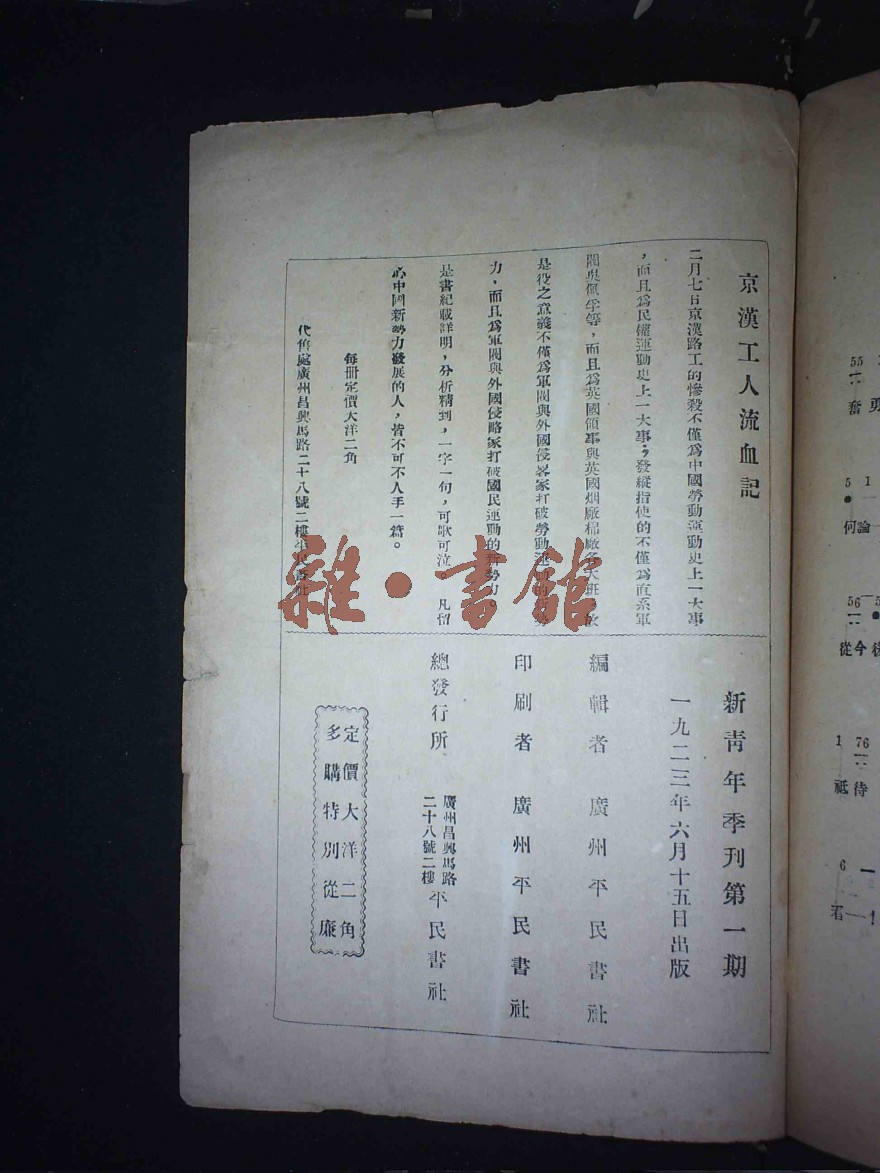 京漢工人流血記
二月七日京漢路工的慘殺不僅爲中國勞動運動史上一大事
，而且爲民權運動史上一大事；發縱指使的不僅爲直系軍
閥吳佩孚等，而且爲英國領事與英國烟廠棉廠各大班。故
是役之意義不僅爲軍閥與外國侵畧家打破勞動運
力，而且爲軍閥與外國侵略家打破國民運動的新勢力。
是書紀載詳明，分析精到，一字一句，可歌可泣 凡留
心中國新勢力發展的人，皆不可不人手一篇。
每冊定價大洋二角
代售處廣州昌興馬路二十八號二樓平民書社
新靑年季刊第一期
一九二三年六月十五日出版
編輯者 廣州平民書社
印刷者 廣州平民書社
總發行所 廣州昌興馬路二十八號二樓 平民書社
定價大洋二角
多購特別從廉
雜·書館
55
奮 勇
5 1
何論
56 5
從今後
1 76
祗待
6 一
看—！